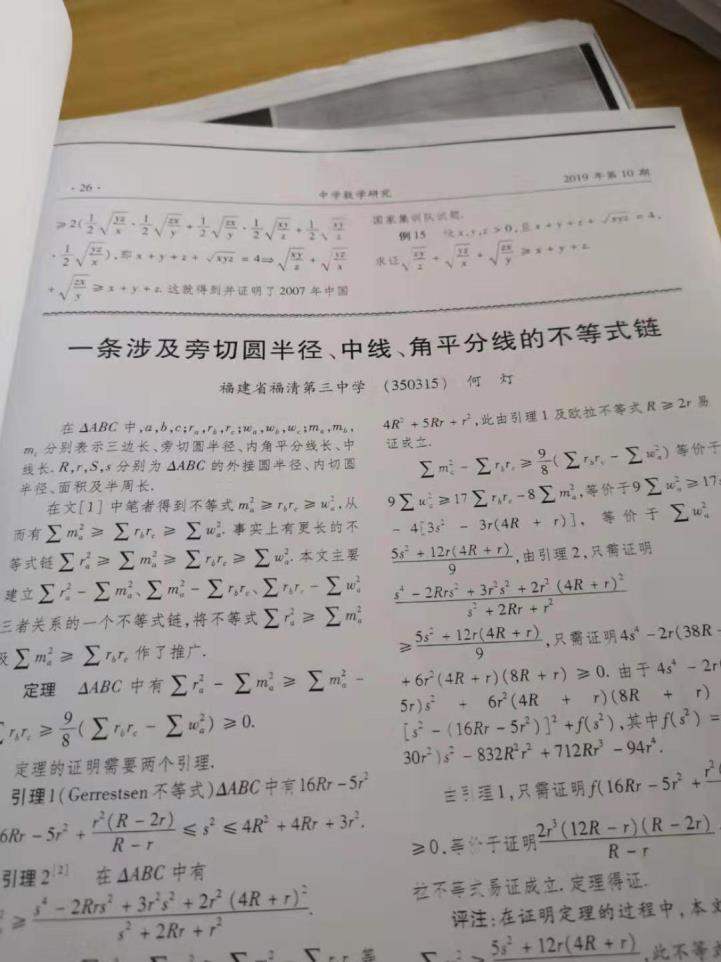 ·26·
中学数学研究
2019 年第 10 期
≥2(1/2√(yz/x)·1/2√(zx/y)+1/2√(zx/y)·1/2√(xy/z)+1/2√(xy/z)
·1/2√(yz/x)),即 x+y+z+√xyz=4⇒√(xy/z)+√(yz/x)
+√(zx/y)≥x+y+z.这就得到并证明了 2007 年中国
国家集训队试题.
例 15 设 x,y,z>0,且 x+y+z+√xyz=4,
求证√(xy/z)+√(yz/x)+√(zx/y)≥x+y+z.
一条涉及旁切圆半径、中线、角平分线的不等式链
福建省福清第三中学 (350315) 何 灯
在 ΔABC 中,a,b,c;r_a,r_b,r_c;w_a,w_b,w_c;m_a,m_b,
m_c 分别表示三边长、旁切圆半径、内角平分线长、中
线长.R,r,S,s 分别为 ΔABC 的外接圆半径、内切圆
半径、面积及半周长.
在文[1] 中笔者得到不等式 m_a²≥r_b r_c≥w_a²,从
而有∑m_a²≥∑r_b r_c≥∑w_a².事实上有更长的不
等式链∑r_a²≥∑m_a²≥∑r_b r_c≥∑w_a².本文主要
建立∑r_a²-∑m_a²、∑m_a²-∑r_b r_c、∑r_b r_c-∑w_a²
三者关系的一个不等式链,将不等式∑r_a²≥∑m_a²
及∑m_a²≥∑r_b r_c 作了推广.
定理 ΔABC 中有∑r_a²-∑m_a²≥∑m_a²-
∑r_b r_c≥9/8(∑r_b r_c-∑w_a²)≥0.
定理的证明需要两个引理.
引理1(Gerretsen 不等式)ΔABC 中有16Rr-5r²
6Rr-5r²+r²(R-2r)/(R-r)≤s²≤4R²+4Rr+3r².
引理 2[2] 在 ΔABC 中有
≥(s⁴-2Rrs²+3r²s²+2r²(4R+r)²)/(s²+2Rr+r²).
4R²+5Rr+r²,此由引理 1 及欧拉不等式 R≥2r 易
证成立.
∑m_a²-∑r_b r_c≥9/8(∑r_b r_c-∑w_a²)等价于
9∑w_a²≥17∑r_b r_c-8∑m_a²,等价于9∑w_a²≥17s
-4[3s²-3r(4R+r)],等价于∑w_a²
(5s²+12r(4R+r))/9,由引理 2,只需证明
(s⁴-2Rrs²+3r²s²+2r²(4R+r)²)/(s²+2Rr+r²)
≥(5s²+12r(4R+r))/9,只需证明4s⁴-2r(38R-
+6r²(4R+r)(8R+r)≥0.由于 4s⁴-2r(
5r)s²+6r²(4R+r)(8R+r)
[s²-(16Rr-5r²)]²+f(s²),其中f(s²)=
30r²)s²-832R²r²+712Rr³-94r⁴.
引理1,只需证明f(16Rr-5r²+r²(
≥0.等价于证明2r³(12R-r)(R-2r)/(R-r)
拉不等式易证成立.定理得证.
评注:在证明定理的过程中,本文
(5s²+12r(4R+r)),此不等